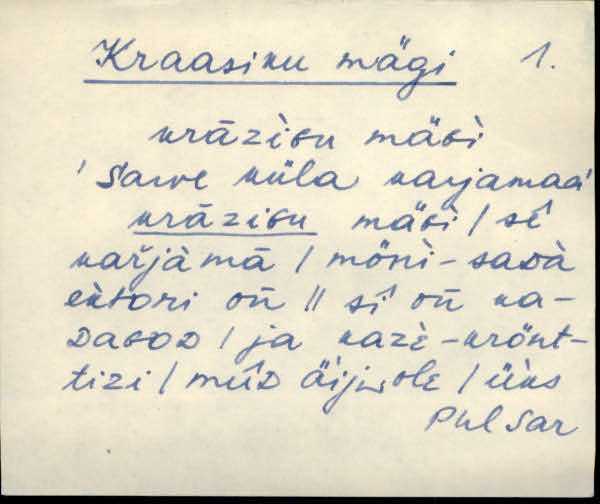 Kraasiku mägi 1.
krāzìGu mäGì
'Sarve küla karjamaa'
krāzìGu mäGì / sî
kařjàmā / mönì-saDà
ektori oñ // sî oñ ka-
DaGoD / ja kazè-krönt-
tizi / mùD äijwole / üks
Phl Sar